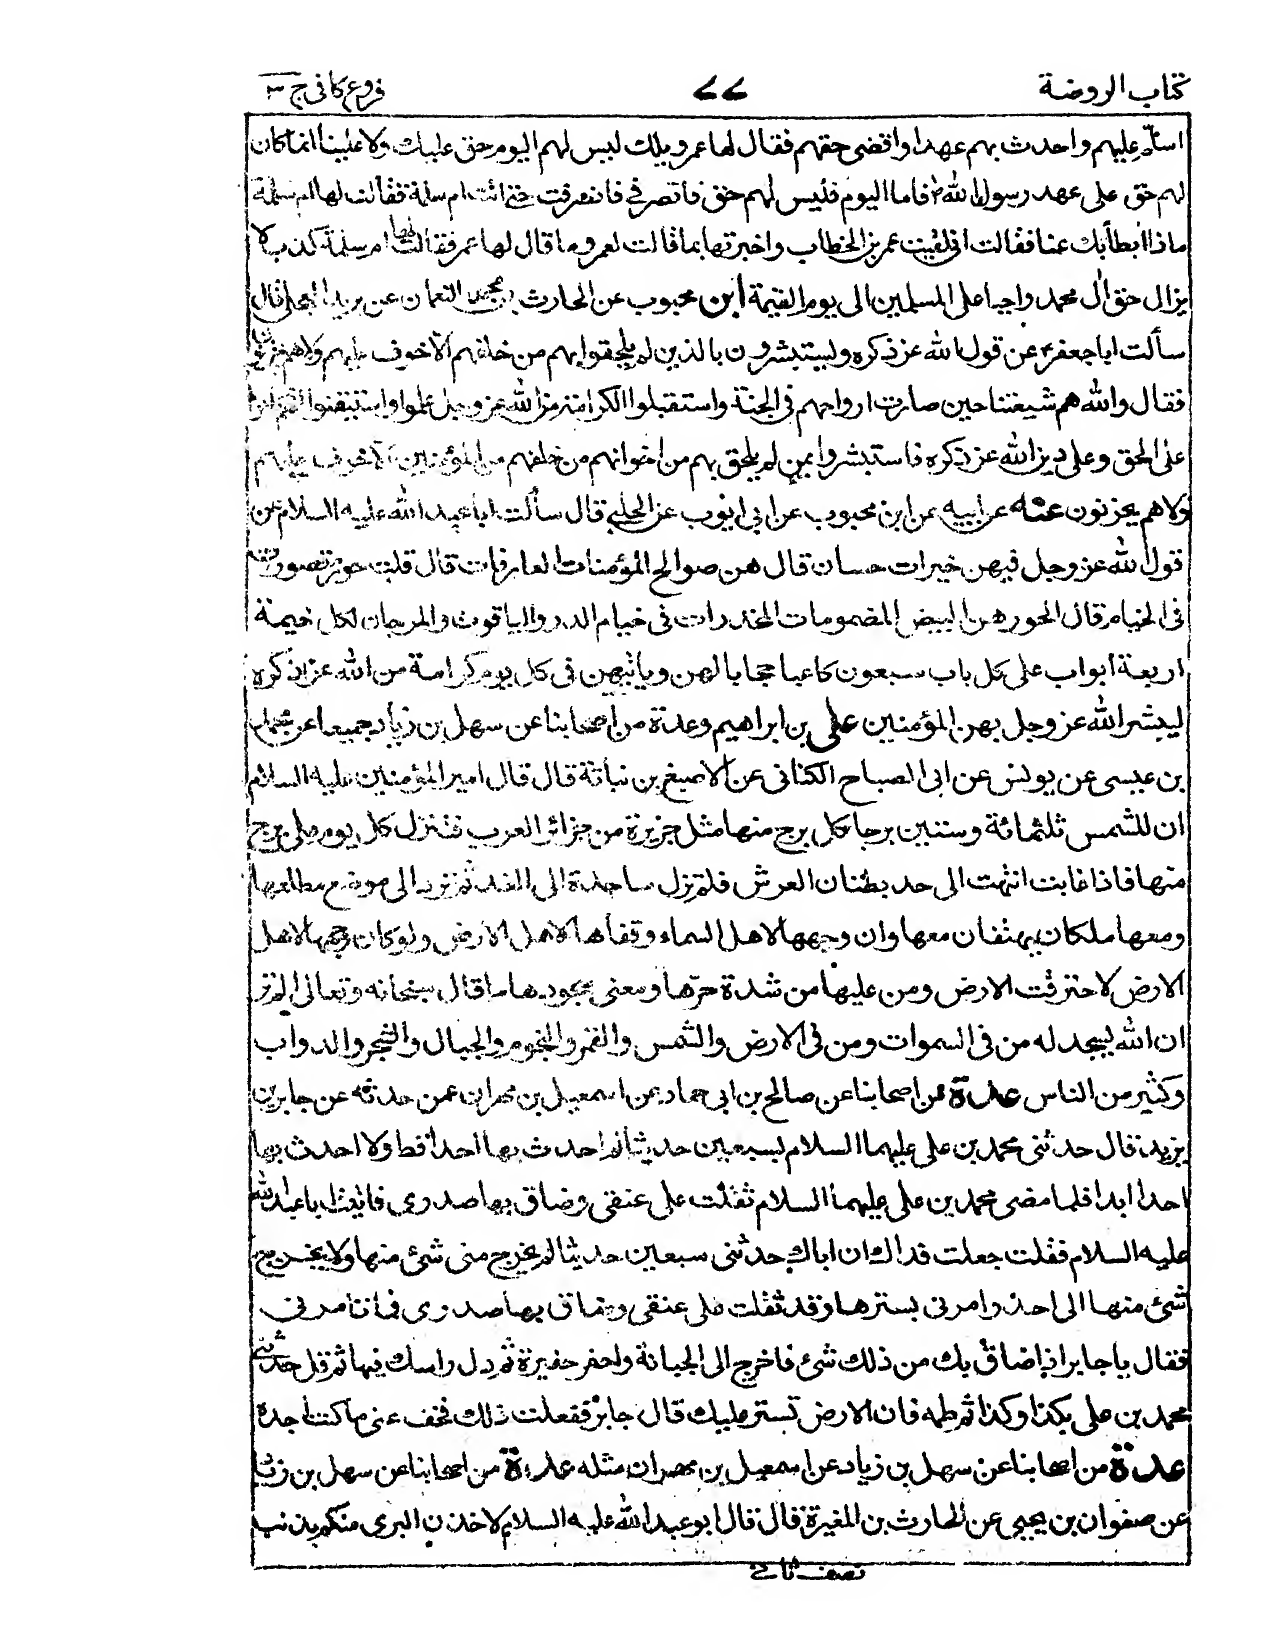 كتاب الروضة ٧٧ فروع كافى ج ٣
اسلّم عليهم واحدث بهم عهدا واقضى حقهم فقال لها عمر ويلك ليس لهم اليوم حق عليك ولا علينا انما كان
لهم حق على عهد رسول الله ص فاما اليوم فليس لهم حق فانصرفى فانصرفت حتى اتت ام سلمة فقالت لها ام سلمة
ماذا ابطأ بك عنا فقالت انى لقيت عمر بن الخطاب واخبرتها بما قالت لعمر وما قال لها عمر فقالت لها ام سلمة كذب لا
يزال حق ال محمد واجبا على المسلمين الى يوم القيمة ابن محبوب عن الحارث بن محمد بن النعمان عن بريد العجلى قال
سألت ابا جعفر ع عن قول الله عز ذكره ويستبشرون بالذين لم يلحقوا بهم من خلفهم الا خوف عليهم ولا هم يحزنون
فقال والله هم شيعتنا حين صارت ارواحهم فى الجنة واستقبلوا الكرامة من الله عز وجل علموا واستيقنوا انهم كانوا
على الحق وعلى دين الله عز ذكره فاستبشروا بمن لم يلحق بهم من اخوانهم من خلفهم من المؤمنين الا خوف عليهم
ولا هم يحزنون عنه عن ابيه عن ابن محبوب عن ابى ايوب عن الحلبى قال سألت ابا عبد الله عليه السلام عن
قول الله عز وجل فيهن خيرات حسان قال هن صوالح المؤمنات العارفات قال قلت حور مقصورات
فى الخيام قال الحور هن البيض المضمومات المخدرات فى خيام الدر والياقوت والمرجان لكل خيمة
اربعة ابواب على كل باب سبعون كاعبا حجابا لهن ويأتيهن فى كل يوم كرامة من الله عز ذكره
ليبشر الله عز وجل بهن المؤمنين على بن ابراهيم وعدة من اصحابنا عن سهل بن زياد جميعا عن محمد
بن عيسى عن يونس عن ابى الصباح الكنانى عن الاصبغ بن نباتة قال قال امير المؤمنين عليه السلام
ان للشمس ثلثمائة وستين برجا كل برج منها مثل جزيرة من جزائر العرب فتنزل كل يوم على برج
منها فاذا غابت انتهت الى حد بطنان العرش فلم تزل ساجدة الى الغد ثم ترد الى موضع مطلعها
ومعها ملكان يهتفان معها وان وجهها لاهل السماء وقفاها لاهل الارض ولو كان وجهها لاهل
الارض لاحترقت الارض ومن عليها من شدة حرّها ومعنى سجودها ما قال سبحانه وتعالى الم تر
ان الله يسجد له من فى السموات ومن فى الارض والشمس والقمر والنجوم والجبال والشجر والدواب
وكثير من الناس عدة من اصحابنا عن صالح بن ابى حماد عن اسمعيل بن مهران عمن حدثه عن جابر بن
يزيد قال حدثنى محمد بن على عليهما السلام بسبعين حديثا لم احدث بها احدا قط ولا احدث بها
احدا ابدا فلما مضى محمد بن على عليهما السلام ثقلت على عنقى وضاق بها صدرى فاتيت ابا عبد الله
عليه السلام فقلت جعلت فداك ان اباك حدثنى سبعين حديثا لم يخرج منى شئ منها ولا يخرج
شئ منها الى احد وامرنى بسترها وقد ثقلت على عنقى وضاق بها صدرى فما تامرنى
فقال يا جابر اذا ضاق بك من ذلك شئ فاخرج الى الجبانة واحفر حفيرة ثم دل راسك فيها ثم قل حدثنى
محمد بن على بكذا وكذا ثم طمه فان الارض تستر عليك قال جابر ففعلت ذلك فخف عنى ما كنت اجده
عدة من اصحابنا عن سهل بن زياد عن اسمعيل بن مهران مثله عدة من اصحابنا عن سهل بن زياد
عن صفوان بن يحيى عن الحارث بن المغيرة قال قال ابو عبد الله عليه السلام لاخذن البرى منكم بذنب
نصف ثانى